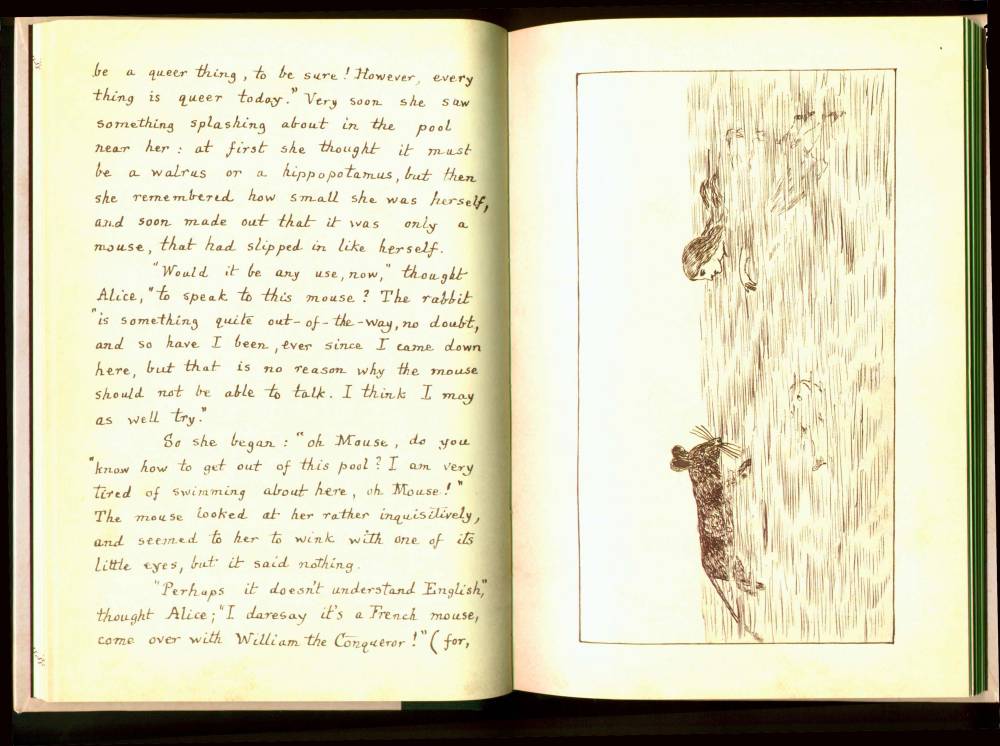 be a queer thing, to be sure! However, every
thing is queer today." Very soon she saw
something splashing about in the pool
near her: at first she thought it must
be a walrus or a hippopotamus, but then
she remembered how small she was herself,
and soon made out that it was only a
mouse, that had slipped in like herself.
"Would it be any use, now," thought
Alice, "to speak to this mouse? The rabbit
"is something quite out-of-the-way, no doubt,
and so have I been, ever since I came down
here, but that is no reason why the mouse
should not be able to talk. I think I may
as well try."
So she began: "oh Mouse, do you
"know how to get out of this pool? I am very
tired of swimming about here, oh Mouse!"
The mouse looked at her rather inquisitively,
and seemed to her to wink with one of its
little eyes, but it said nothing.
"Perhaps it doesn't understand English,"
thought Alice; "I daresay it's a French mouse,
come over with William the Conqueror!" (for,